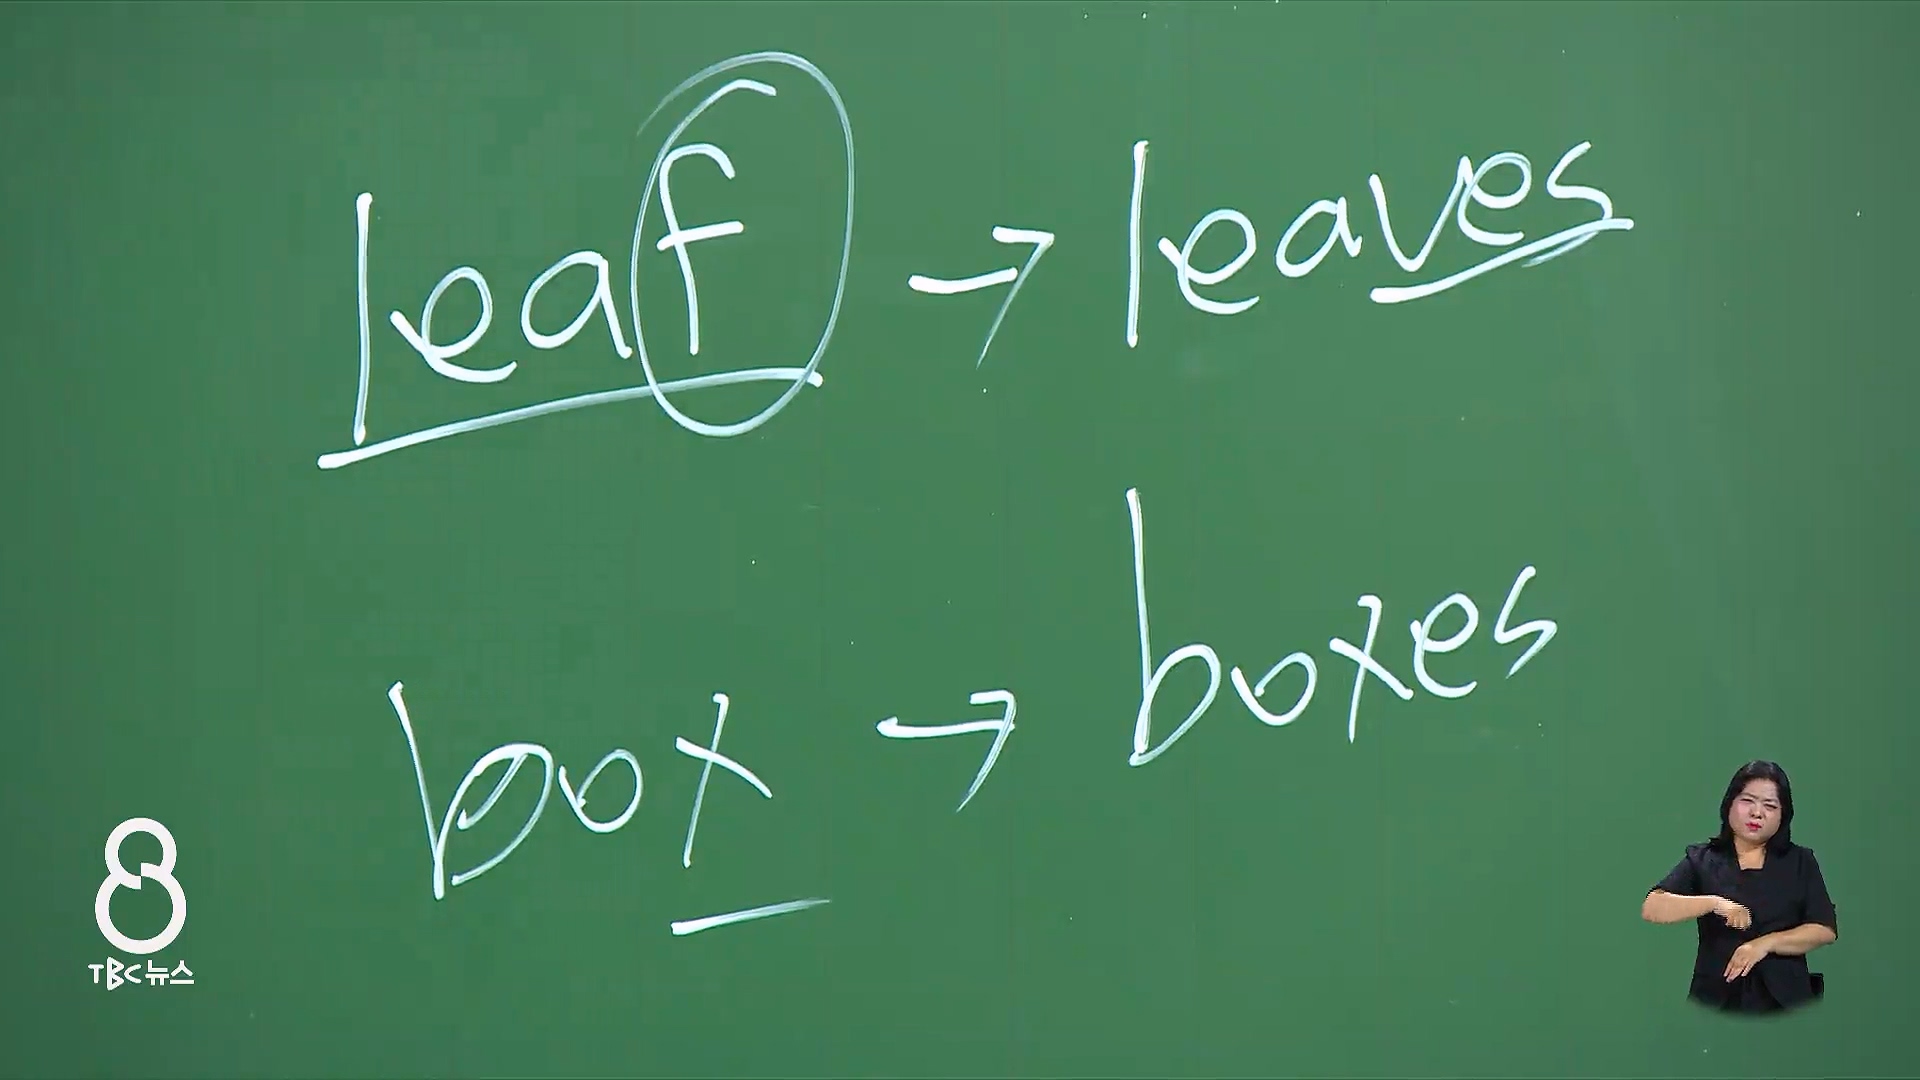 leaf → leaves
box → boxes
8
TBC뉴스